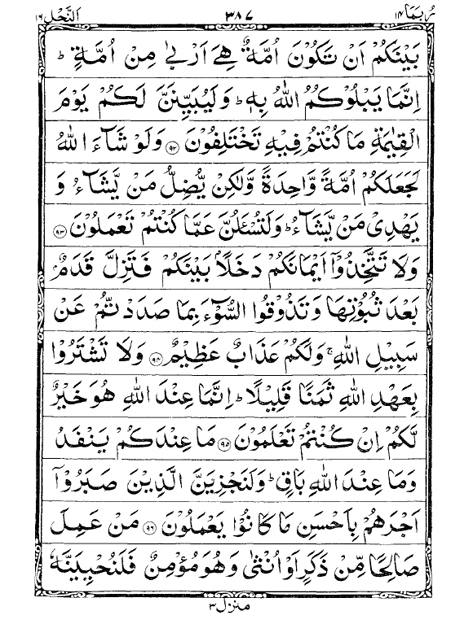 رُبَمَا ١٤ ٣٨٧ اَلنَّحۡل ١٦
بَيۡنَكُمۡ اَنۡ تَكُوۡنَ اُمَّةٌ هِىَ اَرۡبٰى مِنۡ اُمَّةٍ ؕ
اِنَّمَا يَبۡلُوۡكُمُ اللّٰهُ بِهٖ ؕ وَلَيُبَيِّنَنَّ لَكُمۡ يَوۡمَ
الۡقِيٰمَةِ مَا كُنۡتُمۡ فِيۡهِ تَخۡتَلِفُوۡنَ ﴿٩٢﴾ وَلَوۡ شَآءَ اللّٰهُ
لَجَعَلَكُمۡ اُمَّةً وَّاحِدَةً وَّلٰكِنۡ يُّضِلُّ مَنۡ يَّشَآءُ وَ
يَهۡدِىۡ مَنۡ يَّشَآءُ ؕ وَلَتُسۡـَٔلُنَّ عَمَّا كُنۡتُمۡ تَعۡمَلُوۡنَ ﴿٩٣﴾
وَلَا تَتَّخِذُوۡۤا اَيۡمَانَكُمۡ دَخَلًاۢ بَيۡنَكُمۡ فَتَزِلَّ قَدَمٌۢ
بَعۡدَ ثُبُوۡتِهَا وَتَذُوۡقُوا السُّوۡٓءَ بِمَا صَدَدۡتُّمۡ عَنۡ
سَبِيۡلِ اللّٰهِ ۚ وَلَكُمۡ عَذَابٌ عَظِيۡمٌ ﴿٩٤﴾ وَلَا تَشۡتَرُوۡا
بِعَهۡدِ اللّٰهِ ثَمَنًا قَلِيۡلًا ؕ اِنَّمَا عِنۡدَ اللّٰهِ هُوَ خَيۡرٌ
لَّكُمۡ اِنۡ كُنۡتُمۡ تَعۡلَمُوۡنَ ﴿٩٥﴾ مَا عِنۡدَكُمۡ يَنۡفَدُ
وَمَا عِنۡدَ اللّٰهِ بَاقٍ ؕ وَلَنَجۡزِيَنَّ الَّذِيۡنَ صَبَرُوۡۤا
اَجۡرَهُمۡ بِاَحۡسَنِ مَا كَانُوۡا يَعۡمَلُوۡنَ ﴿٩٦﴾ مَنۡ عَمِلَ
صَالِحًا مِّنۡ ذَكَرٍ اَوۡ اُنۡثٰى وَهُوَ مُؤۡمِنٌ فَلَنُحۡيِيَنَّهٗ
منزل ٣